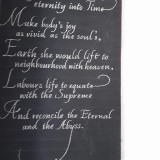 eternity into Time
Make body's joy
as vivid as the soul's,
Earth she would lift to
neighbourhood with heaven,
Labours life to equate
with the Supreme
And reconcile the Eternal
and the Abyss.